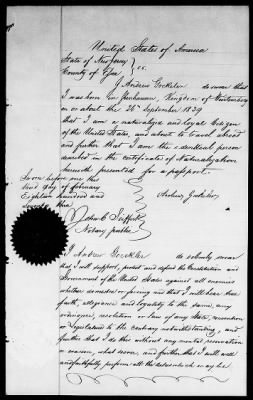 United States of America
State of New Jersey
County of Essex } ss.
I Andrew Goekeler do swear that
I was born in Grunhausen, Kingdom of Wurtemberg
on or about the 26th September 1829
that I am a naturalized and loyal Citizen
of the United States, and about to travel abroad
and further that I am the identical person
described in the certificates of Naturalization
herewith presented for a passport.
Sworn before me this
day of February
Eighteen hundred and
Andrew Goekeler
John C. Seiffert
Notary public
I Andrew Goekeler do solemnly swear
that I will support, protect and defend the Constitution and
Government of the United States against all enemies
whether domestic or foreign and that I will bear true
faith, allegiance and loyalty to the same, any
ordinance, resolution or law of any State, convention
or Legislature to the contrary notwithstanding, and
further that I do this without any mental reservation
or evasion, whatsoever, and further that I will well
and faithfully perform all the duties which may be